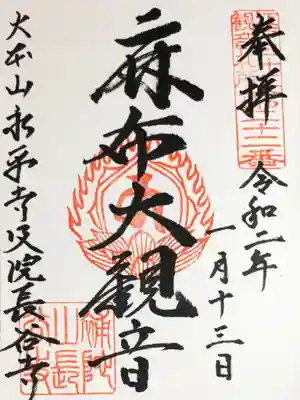 奉拝
令和二年
一月十三日
麻布大観音
大本山永平寺別院長谷寺